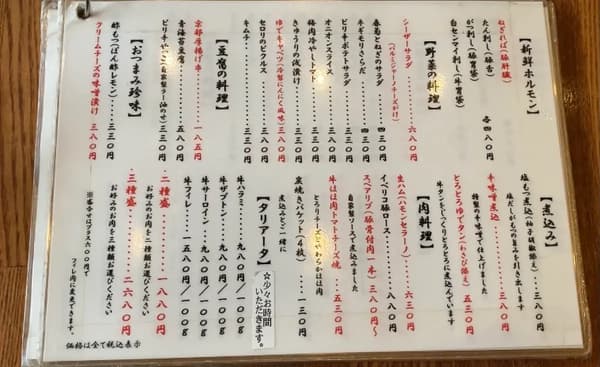 【新鮮ホルモン】
ねぎれば(豚肝臓)
たん刺し(豚舌)
がつ刺し(豚胃袋)
白センマイ刺し(牛胃袋)
各四八〇円
【野菜の料理】
シーザーサラダ・・・・・・六八〇円
(パルミジャーノチーズがけ)
春菊とねぎのサラダ・・・・四三〇円
牛ギモリさらだ・・・・・・四三〇円
ピリ辛ポテトサラダ・・・・三三〇円
オニオンスライス・・・・・三三〇円
梅肉冷やしトマト・・・・・三三〇円
きゅうりの浅漬け・・・・・三三〇円
ゆでキャベツ(冷製にんにく風味)三八〇円
セロリのピクルス・・・・・三三〇円
キムチ・・・・・・三三〇円
【豆腐の料理】
京都厚揚げ串・・・・・一八五円
青海苔豆腐・・・・・・五八〇円
ピリ辛やっこ(自家製ラー油のせ)三三〇円
【おつまみ珍味】
酢もつ(ぽん酢レモン)・・・三三〇円
クリームチーズの味噌漬け 三八〇円
【煮込み】
塩もつ煮込(柚子胡椒添え)・・三八〇円
塩だしがもつの旨みを引き出します
辛味噌煮込・・・・・・三八〇円
特製の辛味噌で仕上げました
とろとろゆでタン(わさび添え) 五三〇円
牛タンをじっくりとろとろに煮込んでいます
【肉料理】
生ハム(ハモンセラーノ)・・・六三〇円
イベリコ豚ロース・・・・・・八八〇円
スペアリブ(豚骨付肉一本)三八〇円〜
自家製ソースで煮込みました
牛ほほ肉トマトチーズ焼・・・五三〇円
とろりチーズとやわらかほほ肉
炭焼きバケット(4枚)・・・・一三〇円
煮込みと一緒に
【タリアータ】
☆少々お時間
いただきます。
牛ハラミ・・・・九八〇円/100g
牛ザブトン・・・九八〇円/100g
牛サーロイン・・九八〇円/100g
牛フィレ・・・一八五〇円/100g
・二種盛・・・・・・一八八〇円
お好みのお肉を二種類お選びください
・三種盛・・・・・・二六八〇円
お好みのお肉を三種類お選びください
※盛合せはプラス六〇〇円で
フィレ肉に変更できます。
価格は全て税込表示